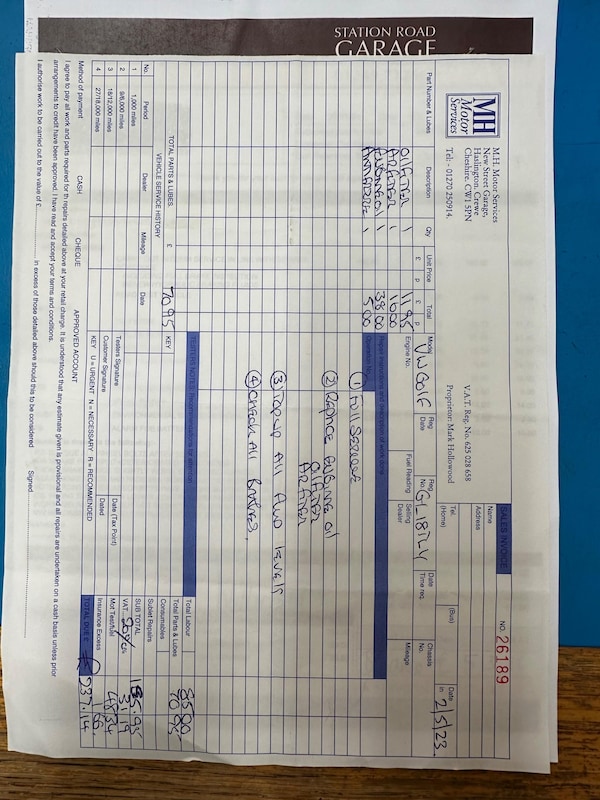 STATION ROAD
GARAGE
MH
Motor
Services
M.H. Motor Services
New Street Garage,
Haslington, Crewe
Cheshire. CW1 5PN
Tel:- 01270 250914.
V.A.T. Reg. No. 625 028 658
Proprietor: Mark Hollowood
SALES INVOICE
NO. 26189
Name
Address
Tel.
(Home)
(Bus)
Date
in 2/5/23
Part Number & Lubes
Description
Qty
Unit Price
£ p
Total
£ p
OIL FILTER 1 11.95
AIR FILTER 1 16.00
ENGINE OIL 1 38.00
ANTIFREEZE 1 5.00
Model VW GOLF
Reg
Date
Reg
No. GL18 TLY
Date
Time req.
Chassis
No.
Engine No.
Fuel Reading
Selling
Dealer
Mileage
Repair instructions and description of work done
Operator No.
① FULL SERVICE
② REPLACE ENGINE OIL
OIL FILTER
AIR FILTER
③ TOP UP ALL FLUID LEVELS
④ CHECK ALL BRAKES.
TOTAL PARTS & LUBES. £ 70.95
VEHICLE SERVICE HISTORY
No. Period Dealer Mileage Date
1 1,000 miles
2 9/6,000 miles
3 18/12,000 miles
4 27/18,000 miles
KEY TESTERS NOTES: Recommendations for attention
Testers Signature
Customer Signature
Date (Tax Point)
Dated
KEY U = URGENT N = NECESSARY R = RECOMMENDED
Total Labour 85.00
Total Parts & Lubes
Consumables
Sublet Repairs
SUB TOTAL
VAT 20%
Mot Test/fuel
Insurance Excess
TOTAL DUE £ 237.14
Method of payment CASH CHEQUE APPROVED ACCOUNT
I agree to pay all work and parts required for th repairs detailed above at your retail charge. It is understood that any estimate given is provisional and all repairs are undertaken on a cash basis unless prior
arrangements to credit have been approved. I have read and accept your terms and conditions.
I authorise work to be carried out to the value of £ in excess of those detailed above should this to be considered Signed